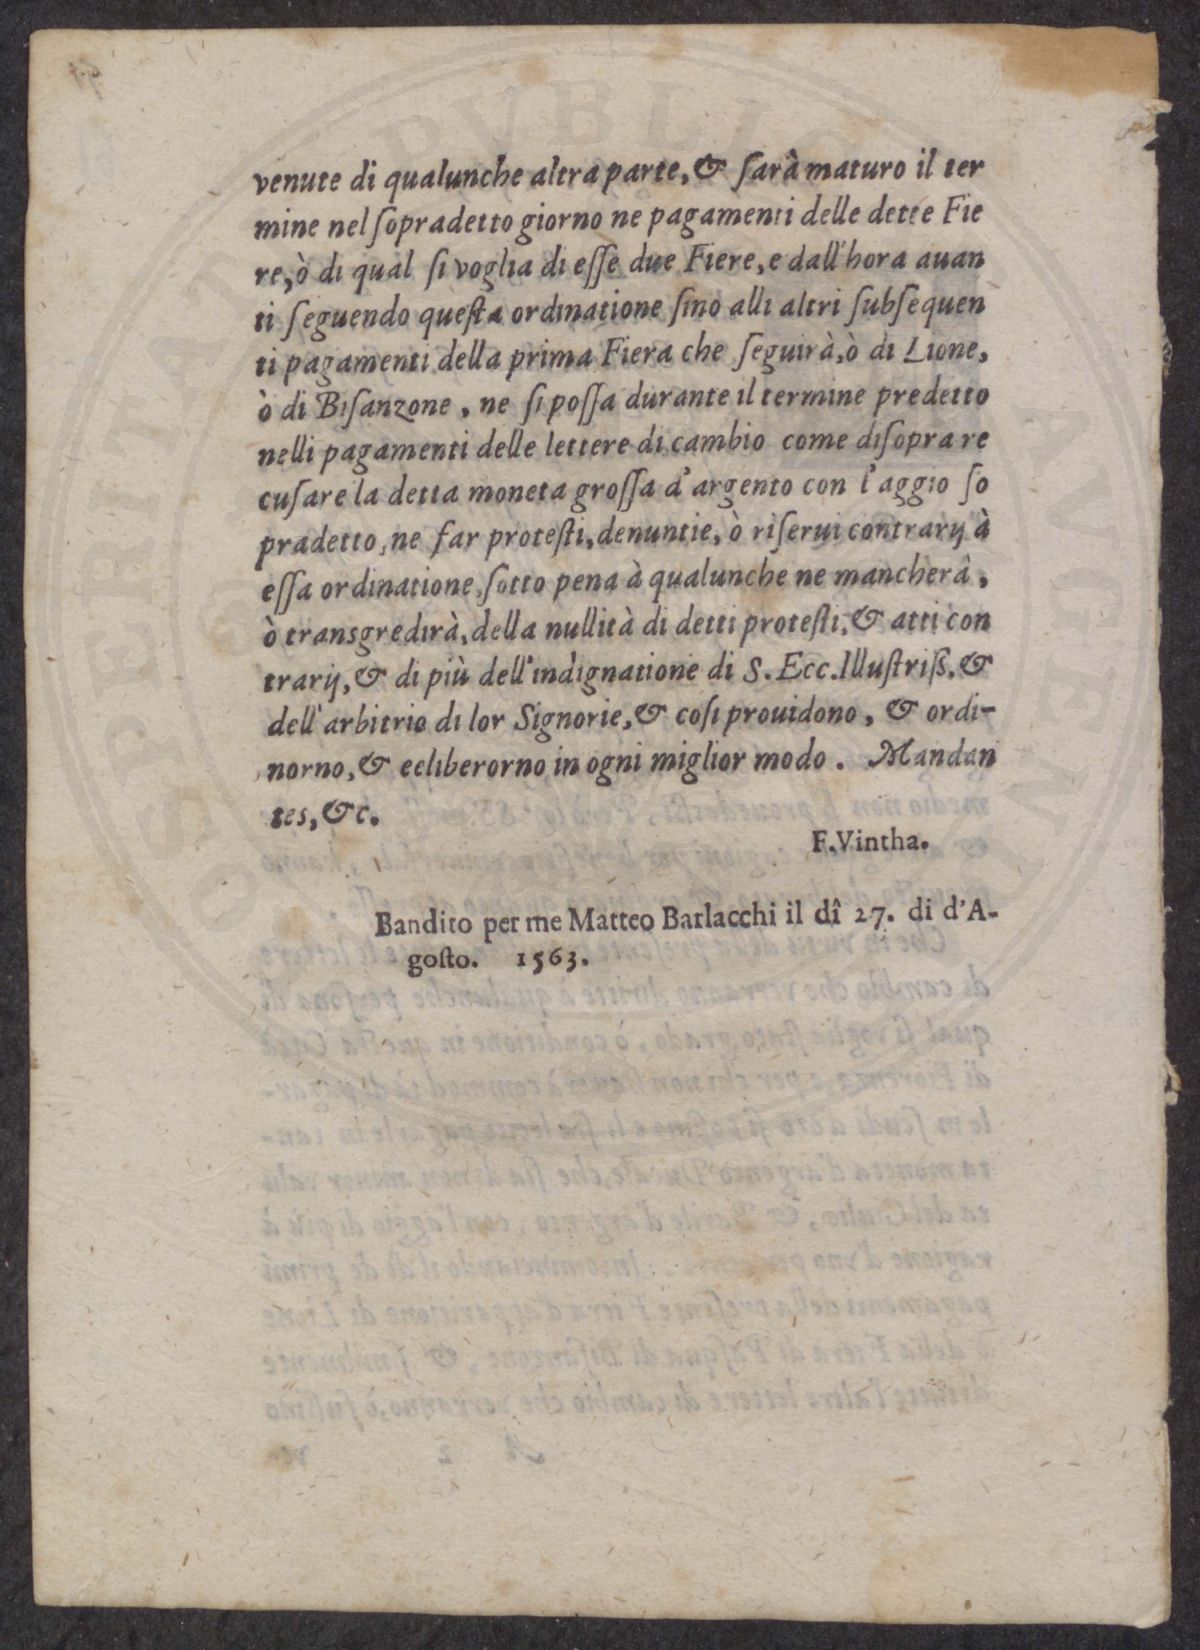 venute di qualunche altra parte, & ſarà maturo il ter
mine nel ſopradetto giorno ne pagamenti delle dette Fie
re, ò di qual ſi voglia di eſſe due Fiere, e dall'hora auan
ti ſeguendo queſta ordinatione ſino alli altri ſubſequen
ti pagamenti della prima Fiera che ſeguirà, ò di Lione,
ò di Biſanzone, ne ſi poſſa durante il termine predetto
nelli pagamenti delle lettere di cambio come diſopra re
cuſare la detta moneta groſſa d'argento con l'aggio ſo
pradetto, ne far proteſti, denuntie, ò riſerui contrarij à
eſſa ordinatione, ſotto pena à qualunche ne mancherâ,
ò transgredirà, della nullità di detti proteſti, & atti con
trarij, & di più dell'indignatione di S. Ecc. Illuſtriß. &
dell'arbitrio di lor Signorie, & coſi prouidono, & ordi-
norno, & eeliberorno in ogni miglior modo. Mandan
tes, &c.
F. Vintha.
Bandito per me Matteo Barlacchi il dî 27. di d'A-
goſto. 1563.